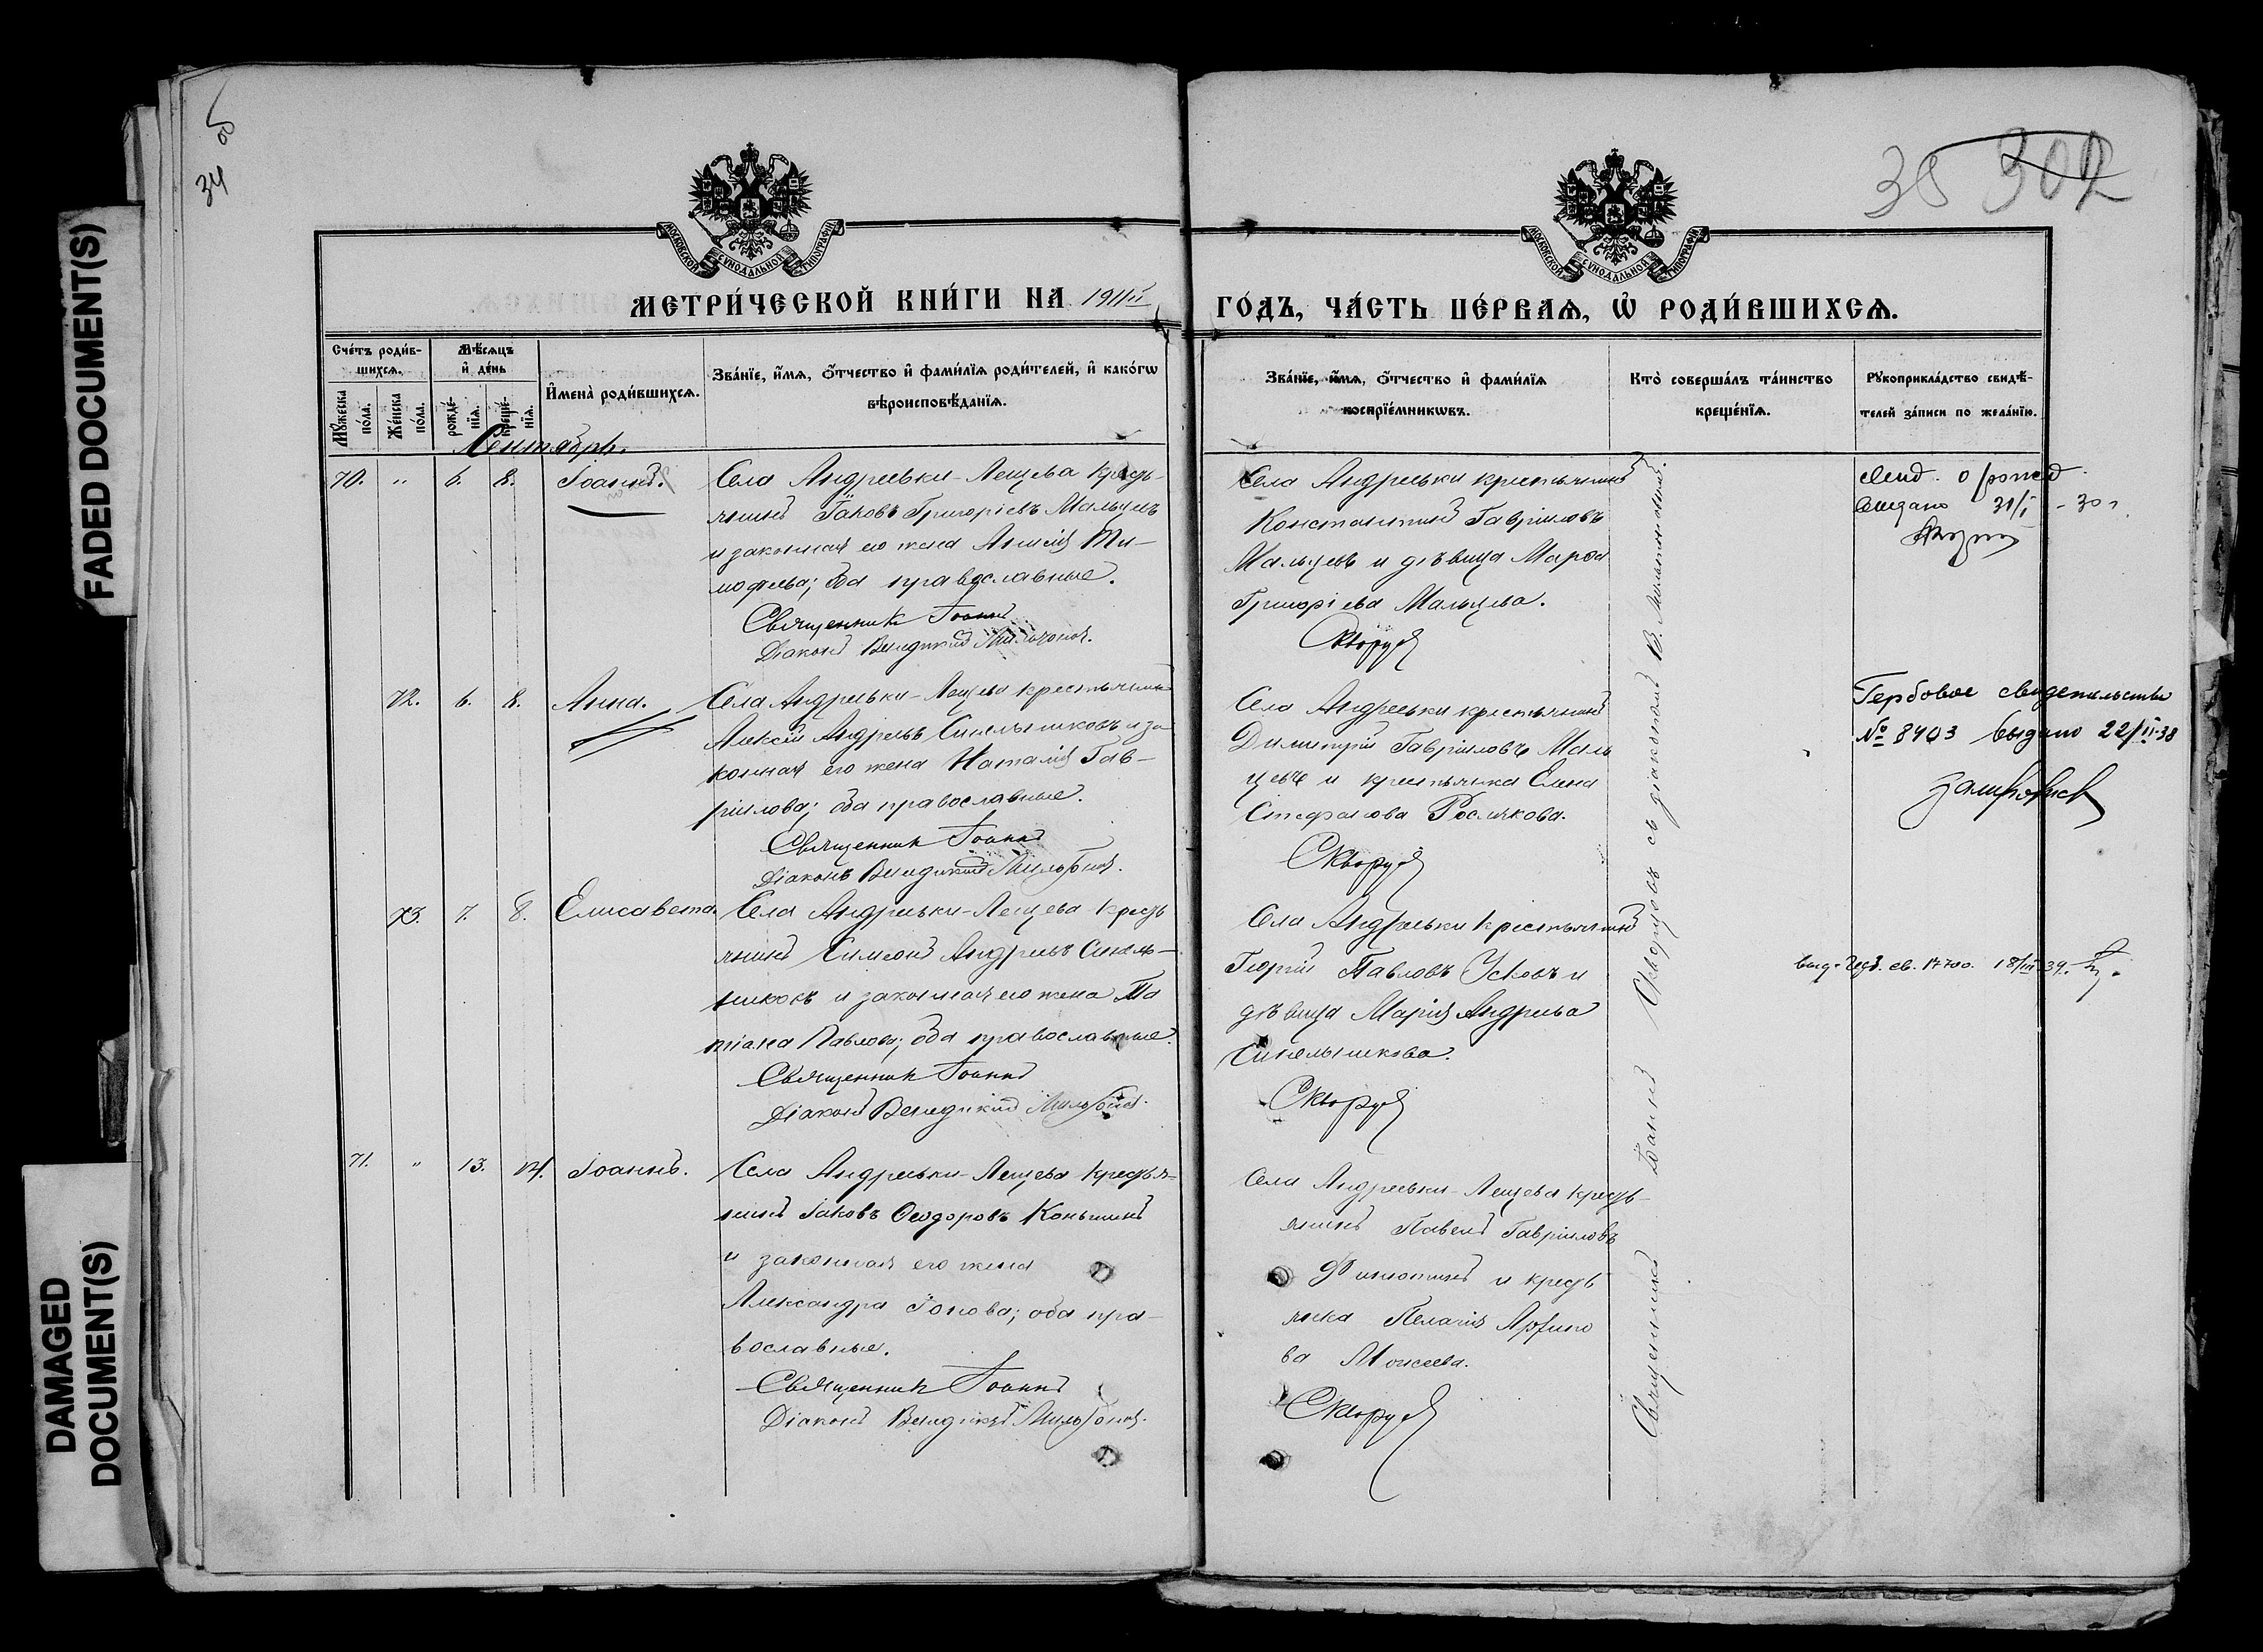 FADED DOCUMENT(S)
DAMAGED
DOCUMENT(S)
34
об
35 302
МОСКОВСКОЙ СѴНОДАЛЬНОЙ ТИПОГРАФІИ
МОСКОВСКОЙ СѴНОДАЛЬНОЙ ТИПОГРАФІИ
МЕТРИ́ЧЕСКОЙ КНИ́ГИ НА 1911й
ГО́ДЪ, ЧА́СТЬ ПЕ́РВАѦ, Ѡ҆ РОДИ́ВШИХСѦ.
Сче́тъ роди́в-
шихсѧ.
Мꙋ́жеска
по́ла.
Же́нска
по́ла.
Мѣ́сѧцъ
и҆ де́нь
рожде́-
нїѧ.
креще́-
нїѧ.
И҆мена̀ роди́вшихсѧ.
Зва́нїе, и҆́мѧ, ѻ҆́тчество и҆ фами́лїѧ роди́телей, и҆ како́гѡ
вѣроисповѣ́данїѧ.
Зва́нїе, и҆́мѧ, ѻ҆́тчество и҆ фами́лїѧ
воспрїе́мникѡвъ.
Кто̀ соверша́лъ та́инство
креще́нїѧ.
Рꙋкоприкла́дство свидѣ́-
телей за́писи по жела́нїю.
Сентябрь.
70. " 6. 8. Іоаннъ.
Села Андреевки-Лещева кресть-
янинъ Іаковъ Григоріевъ Мальцевъ
и законная его жена Анисія Ти-
мофеева; оба православные.
Священникъ Іоаннъ
Діаконъ Венедиктъ
Села Андреевки крестьянинъ
Константинъ Гавріиловъ
Мальцевъ и дѣвица Марѳа
Григоріева Мальцева.
Скворцовъ
выдано 31/I - 30 г.
72. 6. 8. Анна.
Села Андреевки-Лещева крестьянинъ
Алексій Андреевъ Синельниковъ и за-
конная его жена Наталія Гав-
ріилова; оба православные.
Священникъ Іоаннъ
Діаконъ Венедиктъ
Села Андреевки крестьянинъ
Димитрій Гавріиловъ Маль
цевъ и крестьянка Елена
Стефанова Рослякова.
Скворцовъ
Гербовое свидетельство
№ 8403 выдано 22/II-38
73. 7. 8. Елисавета.
Села Андреевки-Лещева кресть
янинъ Симеонъ Андреевъ Синель-
никовъ и законная его жена Та
тіана Павлова; оба православные.
Священникъ Іоаннъ
Діаконъ Венедиктъ
Села Андреевки крестьянинъ
Георгій Павловъ Усковъ и
дѣвица Марія Андреева
Синельникова.
Скворцовъ
св. 17700. 18/III 39.
71. " 13. 14. Іоаннъ.
Села Андреевки-Лещева кресть-
янинъ Іаковъ Ѳеодоровъ Коньшинъ
и законная его жена
Александра Іонова; оба пра-
вославные.
Священникъ Іоаннъ
Діаконъ Венедиктъ
Села Андреевки-Лещева кресть-
янинъ Павелъ Гавріиловъ
и кресть
янка Пелагія
ва Моисеева.
Скворцовъ
Священникъ Іоаннъ Скворцовъ съ діакономъ В.